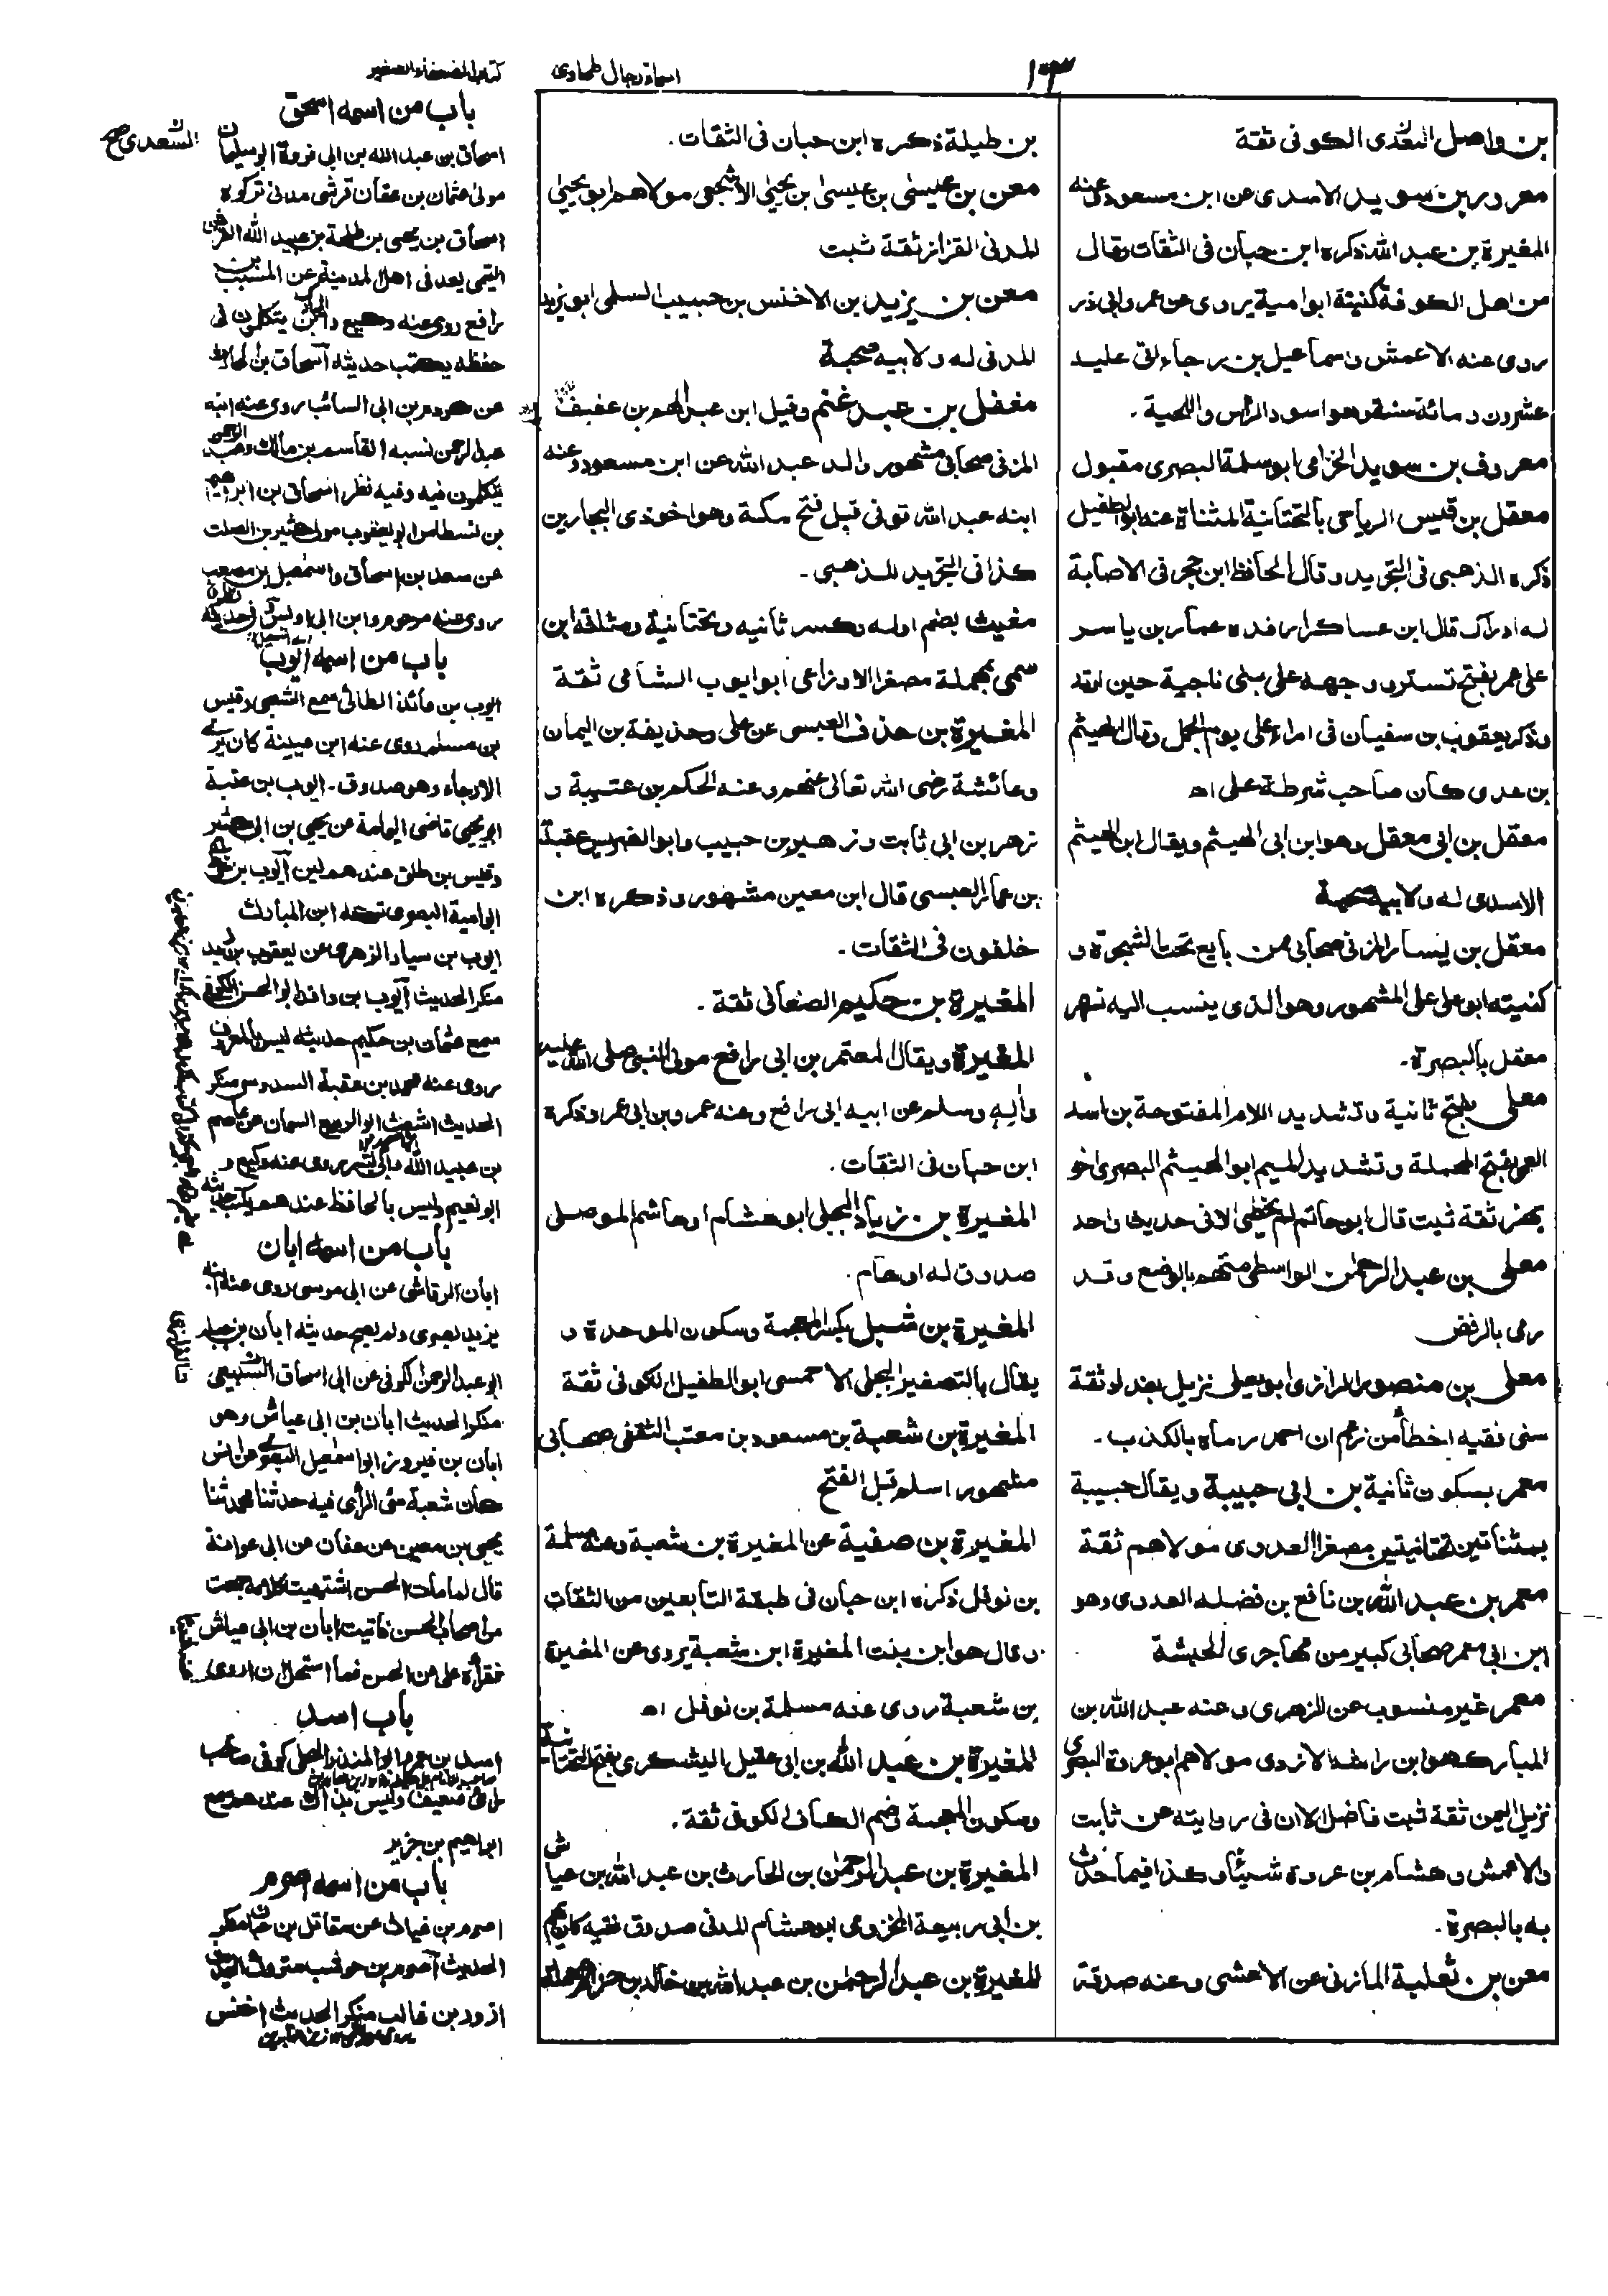 ١٣
اسماء رجال طحاوی
کتاب الضعفاء الصغیر
بن واصل السعدی الکوفی ثقة
معرور بن سوید الاسدی عن ابن مسعود وعنه
المغیرة بن عبد الله ذکره ابن حبان فی الثقات وقال
من اهل الکوفة کنیته ابو امیة یروی عن عمر وابی ذر
روی عنه الاعمش واسماعیل بن رجاء اتی علیه
عشرون ومائة سنة وهو اسود الراس واللحیة .
معروف بن سوید الخزامی ابو سلمة البصری مقبول
معقل بن قیس الریاحی بالتحتانیة المثناة عنه ابو الطفیل
ذکره الذهبی فی التجرید وقال الحافظ ابن حجر فی الاصابة
له ادراک قال ابن عساکر ارفده عمار بن یاسر
علی عمر بفتح تستر ووجهه علی بنی ناجیة حین ارتد
وذکر یعقوب بن سفیان فی امراء علی یوم الجمل وقال الهیثم
بن عدی کان صاحب شرطة علی اه
معقل بن ابی معقل وهو ابن ابی الهیثم ویقال ابن الهیثم
الاسدی له ولابیه صحبة
معقل بن یسار المزنی صحابی ممن بایع تحت الشجرة و
کنیته ابو علی علی المشهور وهو الذی ینسب الیه نهر
معقل بالبصرة .
معلی بفتح ثانیة وتشدید اللام المفتوحة بن اسد
العمی بفتح المهملة وتشدید المیم ابو الهیثم البصری اخو
بهز ثقة ثبت قال ابو حاتم لم یخطی الا فی حدیث واحد
معلی بن عبد الرحمٰن الواسطی متهم بالوضع وقد
رمی بالرفض
معلی بن منصور الرازی ابو یعلی نزیل بغداد ثقة
سنی فقیه اخطأ من زعم ان احمد رماه بالکذب .
معمر بسکون ثانیة بن ابی حبیبة ویقال حبیبة
بمثناتین تحتانیتین مصغرا العدوی مولاهم ثقة
معمر بن عبد الله بن نافع بن فضله العدوی وهو
ابن ابی معمر صحابی کبیر من مهاجری الحبشة
معمر غیر منسوب عن الزهری وعنه عبد الله بن
المبارک هو ابن راشد الازدی مولاهم ابو عروة البصری
نزیل الیمن ثقة ثبت فاضل الا ان فی روایته عن ثابت
والاعمش وهشام بن عروة شیئا وکذا فیما حدث
به بالبصرة .
معن بن ثعلبة المازنی عن الاعشی وعنه صدقة
بن طیلة ذکره ابن حبان فی الثقات .
معن بن عیسٰی بن عیسیٰ بن یحیٰی الاشجعی مولاهم ابو یحیٰی
المدنی القزاز ثقة ثبت
معن بن یزید بن الاخنس بن حبیب السلمی ابو یزید
المدنی له ولابیه صحبة
مغفل بن عبد غنم وقیل ابن عبد نهم بن عفیف
المزنی صحابی مشهور والد عبد الله عن ابن مسعود وعنه
ابنه عبد الله توفی قبل فتح مکة وهو اخو ذی البجادین
کذا فی التجرید للذهبی .
مغیث بضم اوله وکسر ثانیه وتحتانیة ومثلثة ابن
سمی بمهملة مصغرا الاوزاعی ابو ایوب الشامی ثقة
المغیرة بن حذف العبسی عن علی وحذیفة بن الیمان
وعائشة رضی الله تعالی عنهم وعنه الحکم بن عتیبة و
زهر بن ابی ثابت وزهیر بن حبیب وابو العریس عقبة
بن عمار العبسی قال ابن معین مشهور وذکره ابن
خلفون فی الثقات .
المغیرة بن حکیم الصنعانی ثقة .
المغیرة ویقال المعتمر بن ابی رافع مولی النبی صلی الله علیه
وآله وسلم عن ابیه ابی رافع وعنه عمرو بن ابی عمر وذکره
ابن حبان فی الثقات .
المغیرة بن زیاد البجلی ابو هشام او هاشم الموصلی
صدوق له اوهام .
المغیرة بن شبل بکسر المعجمة وسکون الموحدة و
یقال بالتصغیر البجلی الاحمسی ابو الطفیل الکوفی ثقة
المغیرة بن شعبة بن مسعود بن معتب الثقفی صحابی
مشهور اسلم قبل الفتح
المغیرة بن صفیة عن المغیرة بن شعبة وعنه مسلمة
بن نوفل ذکره ابن حبان فی طبقة التابعین من الثقات
وقال هو ابن بنت المغیرة ابن شعبة یروی عن المغیرة
بن شعبة روی عنه مسلمة بن نوفل اه
المغیرة بن عبد الله بن ابی عقیل الیشکری بفتح التحتانیة
وسکون المعجمة وضم الکاف الکوفی ثقة .
المغیرة بن عبد الرحمٰن بن الحارث بن عبد الله بن عیاش
بن ابی ربیعة المخزومی ابو هشام المدنی صدوق فقیه کان یهم
المغیرة بن عبد الرحمٰن بن عبد الله بن خالد بن حزام
باب من اسمه اسحٰق
اسحاق بن عبد الله بن ابی فروة ابو سلیمان
مولی عثمان بن عفان قرشی مدنی ترکوه
اسحاق بن یحیی بن طلحة بن عبید الله القرشی
التیمی یعد فی اهل المدینة عن المسیب بن
رافع روی عنه وکیع وابن المبارک یتکلمون فی
حفظه یکتب حدیثه اسحاق بن الحارث
عن هرمز بن ابی السائب روی عنه ابنه
عبد الرحمن نسبه القاسم بن مالک
یتکلمون فیه وفیه نظر اسحاق بن ابراهیم
بن نسطاس ابو یعقوب مولی کثیر بن الصلت
عن سعد بن اسحاق واسمعیل بن مصعب
روی عنه مرحوم وابن ابی اویس فی حدیثه نظر
باب من اسمه ایوب
ایوب بن عائذ الطائی سمع الشعبی وقیس
بن مسلم روی عنه ابن عیینة کان یری
الارجاء وهو صدوق . ایوب بن عتبة
ابو یحیی قاضی الیمامة عن یحیی بن ابی کثیر
وقیس بن طلق عندهم لین ایوب بن خوط
ابو امیة البصری ترکه ابن المبارک
ایوب بن سیار الزهری عن یعقوب بن زید
منکر الحدیث ایوب بن واقد ابو الحسن الکوفی
سمع عثمان بن حکیم حدیثه لیس بالمعروف
روی عنه محمد بن عقبة السدوسی منکر
الحدیث اشعث ابو الربیع السمان عن عاصم
بن عبید الله وابی بشر روی عنه وکیع و
ابو نعیم ولیس بالحافظ عندهم یکتب حدیثه
باب من اسمه ابان
ابان الرقاشی عن ابی موسی روی عنه ابنه
یزید بصری ولم یصح حدیثه ابان بن جبلة
ابو عبد الرحمن الکوفی عن ابی اسحاق السبیعی
منکر الحدیث ابان بن ابی عیاش وهو
ابان بن فیروز ابو اسمعیل البصری عن انس
کان شعبة سئ الرأی فیه حدثنا محمد ثنا
یحیی بن معین عن عفان عن ابی عوانة
قال لما مات الحسن اشتهیت کلامه فجمعت
من اصحاب الحسن فاتیت ابان بن ابی عیاش
فقرأه علی عن الحسن فما استحل ان اروی
باب اسد
اسد بن عمرو ابو المنذر البجلی کوفی صاحب
رای ضعیف ولیس بذاک عندهم سمع
ابراهیم بن جریر
باب من اسمه اصرم
اصرم بن غیاث عن مقاتل بن حیان منکر
الحدیث اصرم بن حوشب متروک الحدیث
ازور بن غالب منکر الحدیث اخنس
السعدی صح